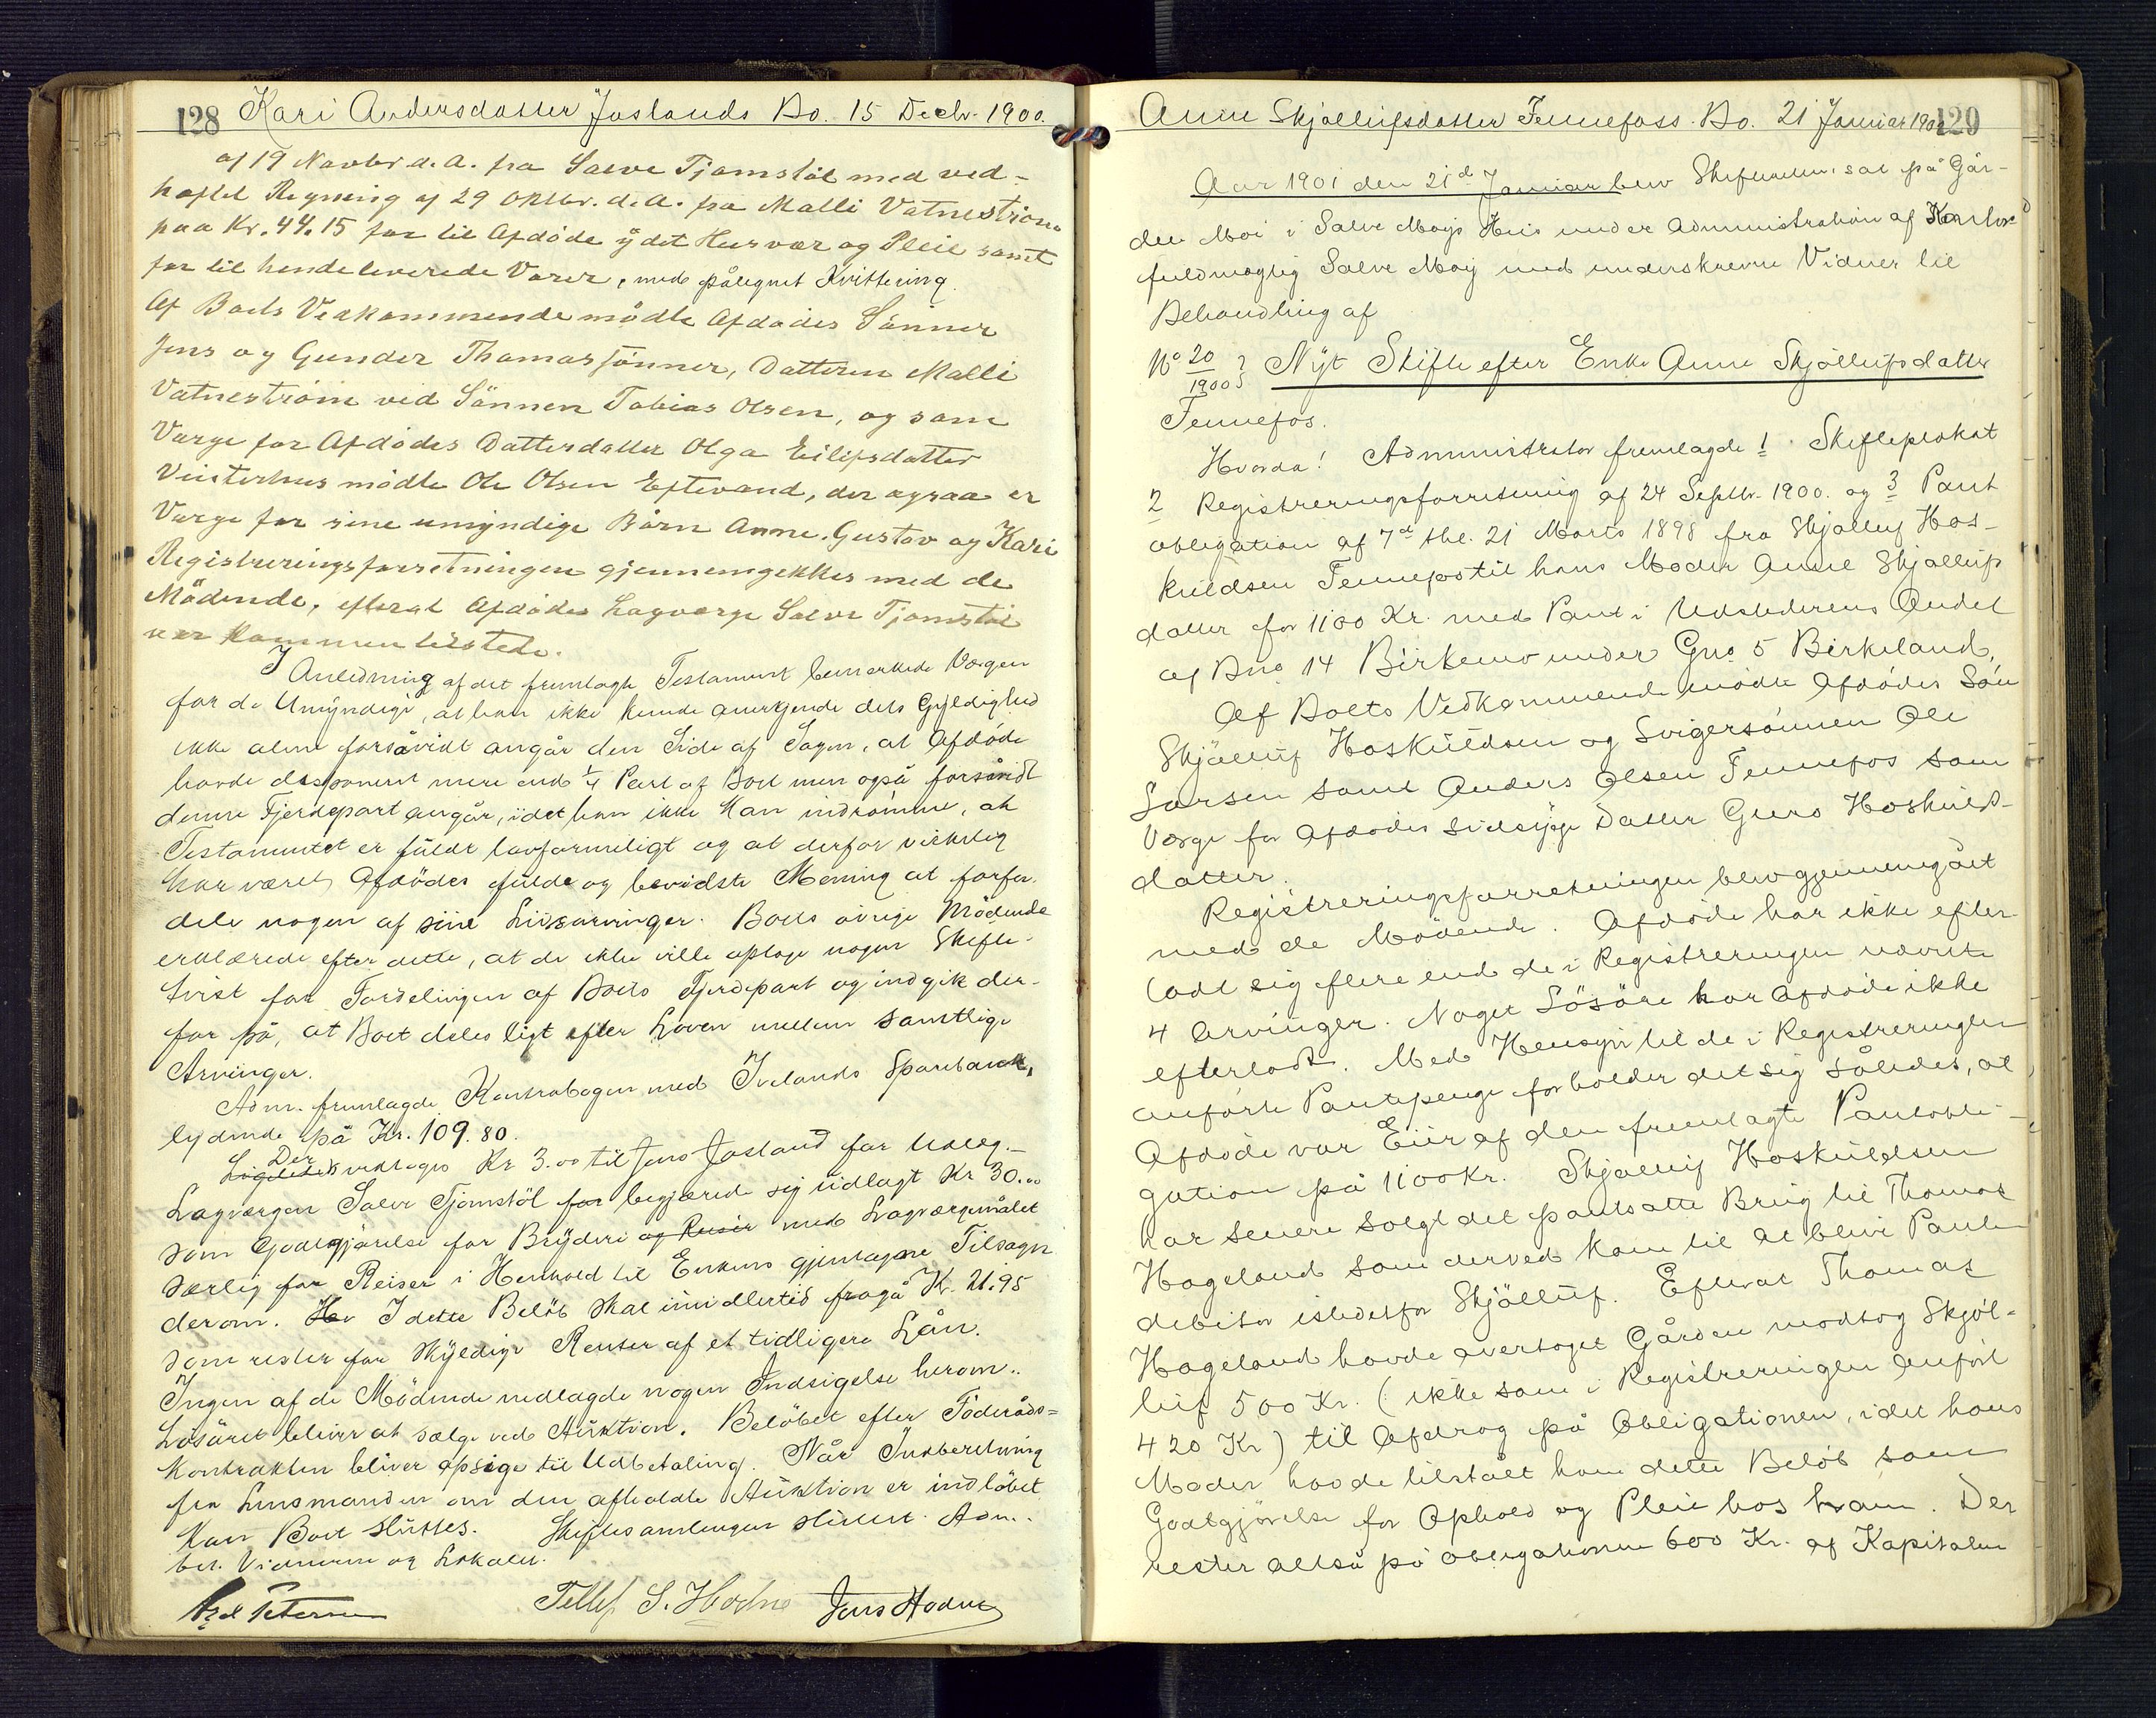 128 Kari Andersdatter Joslands Bo. 15 Decbr. 1900.
af 19 Novbr. d. A. fra Salve Tjomstøl med ved-
hæftet Regning af 29 Oktbr. d. A. fra Malli Vatnestrøm
paa Kr. 44.15 for til Afdøde ÿdet Husvær og Pleie samt
for til hende leverede Varer, med påtegnet Kvittering.
Af Boets Vedkommende mødte Afdødes Sønner
Jens og Gunder Thomassønner, Datteren Malli
Vatnestrøm ved Sønnen Tobias Olsen, og som
Værge for Afdødes Datterdatter Olga Eilifsdatter
Vinterhus mødte Ole Olsen Eftevand, der ogsaa er
Værge for sine umyndige Børn Anne, Gustav og Kari
Registreringsforretningen gjennemgikkes med de
Mødende, efterat Afdødes Lagværge Salve Tjomstøl
var kommen tilstede.
I Anledning af det fremlagte Testament bemærkede Værgen
for de Umÿndige, at han ikke kunde anerkjende dets Gyldighed
ikke alene forsåvidt angår den Side af Sagen, at Afdøde
havde disponeret mere end 1/4 Part af Boet men også forsåvidt
denne Fjerdepart angår, idet han ikke kan indrømme, at
Testamentet er fuldt lovformeligt og at derfor virkelig
har været Afdødes fulde og bevidste Mening at forfor-
dele nogen af sine Livsarvinger. Boets øvrige Mødende
erklærede efter dette, at de ikke ville optage nogen Skifte-
tvist for Fordelingen af Boets Fjerdepart og indgik der-
for på, at Boet deles ligt efter Loven mellem samtlige
Arvinger.
Adm. fremlagde Kontrabogen med Ivelands Sparebank,
lydende på Kr. 109.80.
Der vedtages Kr 3.00 til Jens Josland for Udlæg.-
Lagværgen Salve Tjomstøl for begjærede sig udlagt Kr 30.00
som Godtgjørelse for Brÿderi og Reiser med Lagværgemålet
særlig for Reiser i Henhold til Enkens gjentagne Tilsagn
derom. Her I dette Beløb skal imidlertid fragå Kr. 21.95
som rester for skÿldige Renter af et tidligere Lån.
Ingen af de Mødende nedlagde nogen Indsigelse herom.
Løsøret bliver at sælge ved Auktion. Beløbet efter Føderåds-
kontrakten bliver opsige til Udbetaling. Når Indberetning
fra Lensmanden om den afholdte Auktion er indløbet
kan Boet sluttes. Skiftesamlingen sluttet. Adm.
bet. Vidnerne og Lokalet.
Axel Petersen Tellef S. Hodne Jens Hodne
Anne Skjøllufsdatter Fennefoss Bo. 21 Januar 1901 129
Aar 1901 den 21de Januar blev Skifteretten sat på Går-
den Moi i Salve Moÿs Hus under Administration af Kontor-
fuldmægtig Salve Moÿ med underskrevne Vidner til
Behandling af
No 20/1900: Nÿt Skifte efter Enke Anne Skjøllufsdatter
Fennefos.
Hvorda! Administrator fremlagde 1 Skifteplakat
2 Registreringsforretning af 24 Septbr. 1900. og 3 Pant
obligation af 7de thl. 21 Marts 1898 fra Skjølluf Hos-
kuldsen Fennefos til hans Moder Anne Skjøllufs
datter for 1100 Kr. med Pant i Udstederens Andel
af Bno 14 Birkemo under Gno 5 Birkeland.
Af Boets Vedkommende mødte Afdødes Søn
Skjølluf Hoskuldsen og Svigersønnen Ole
Larsen samt Anders Olsen Fennefos som
Værge for Afdødes sidsÿge Datter Guro Hoskulds-
datter.
Registreringsforretningen blev gjennemgået
med de Mødende. Afdøde har ikke efter-
ladt sig flere end de i Registreringen nævnte
4 Arvinger. Noget Løsøre har Afdøde ikke
efterladt. Med Hensyn til de i Registreringen
anførte Pantepenge forholder det sig således, at
Afdøde var Eier af den fremlagte Pantobli-
gation på 1100 Kr. Skjølluf Hoskuldsen
har senere solgt det pantsatte Brug til Thomas
Hageland som derved kom til at blive Pante
debitor istedetfor Skjølluf. Efterat Thomas
Hageland havde overtaget Gården modtog Skjøl-
luf 500 Kr. (ikke som i Registreringen anført
420 Kr) til Afdrag på Obligationen, idet hans
Moder havde tilstået ham dette Beløb som
Godtgjørelse for Ophold og Pleie hos ham. Der
rester altså på Obligationen 600 Kr. af Kapitalen